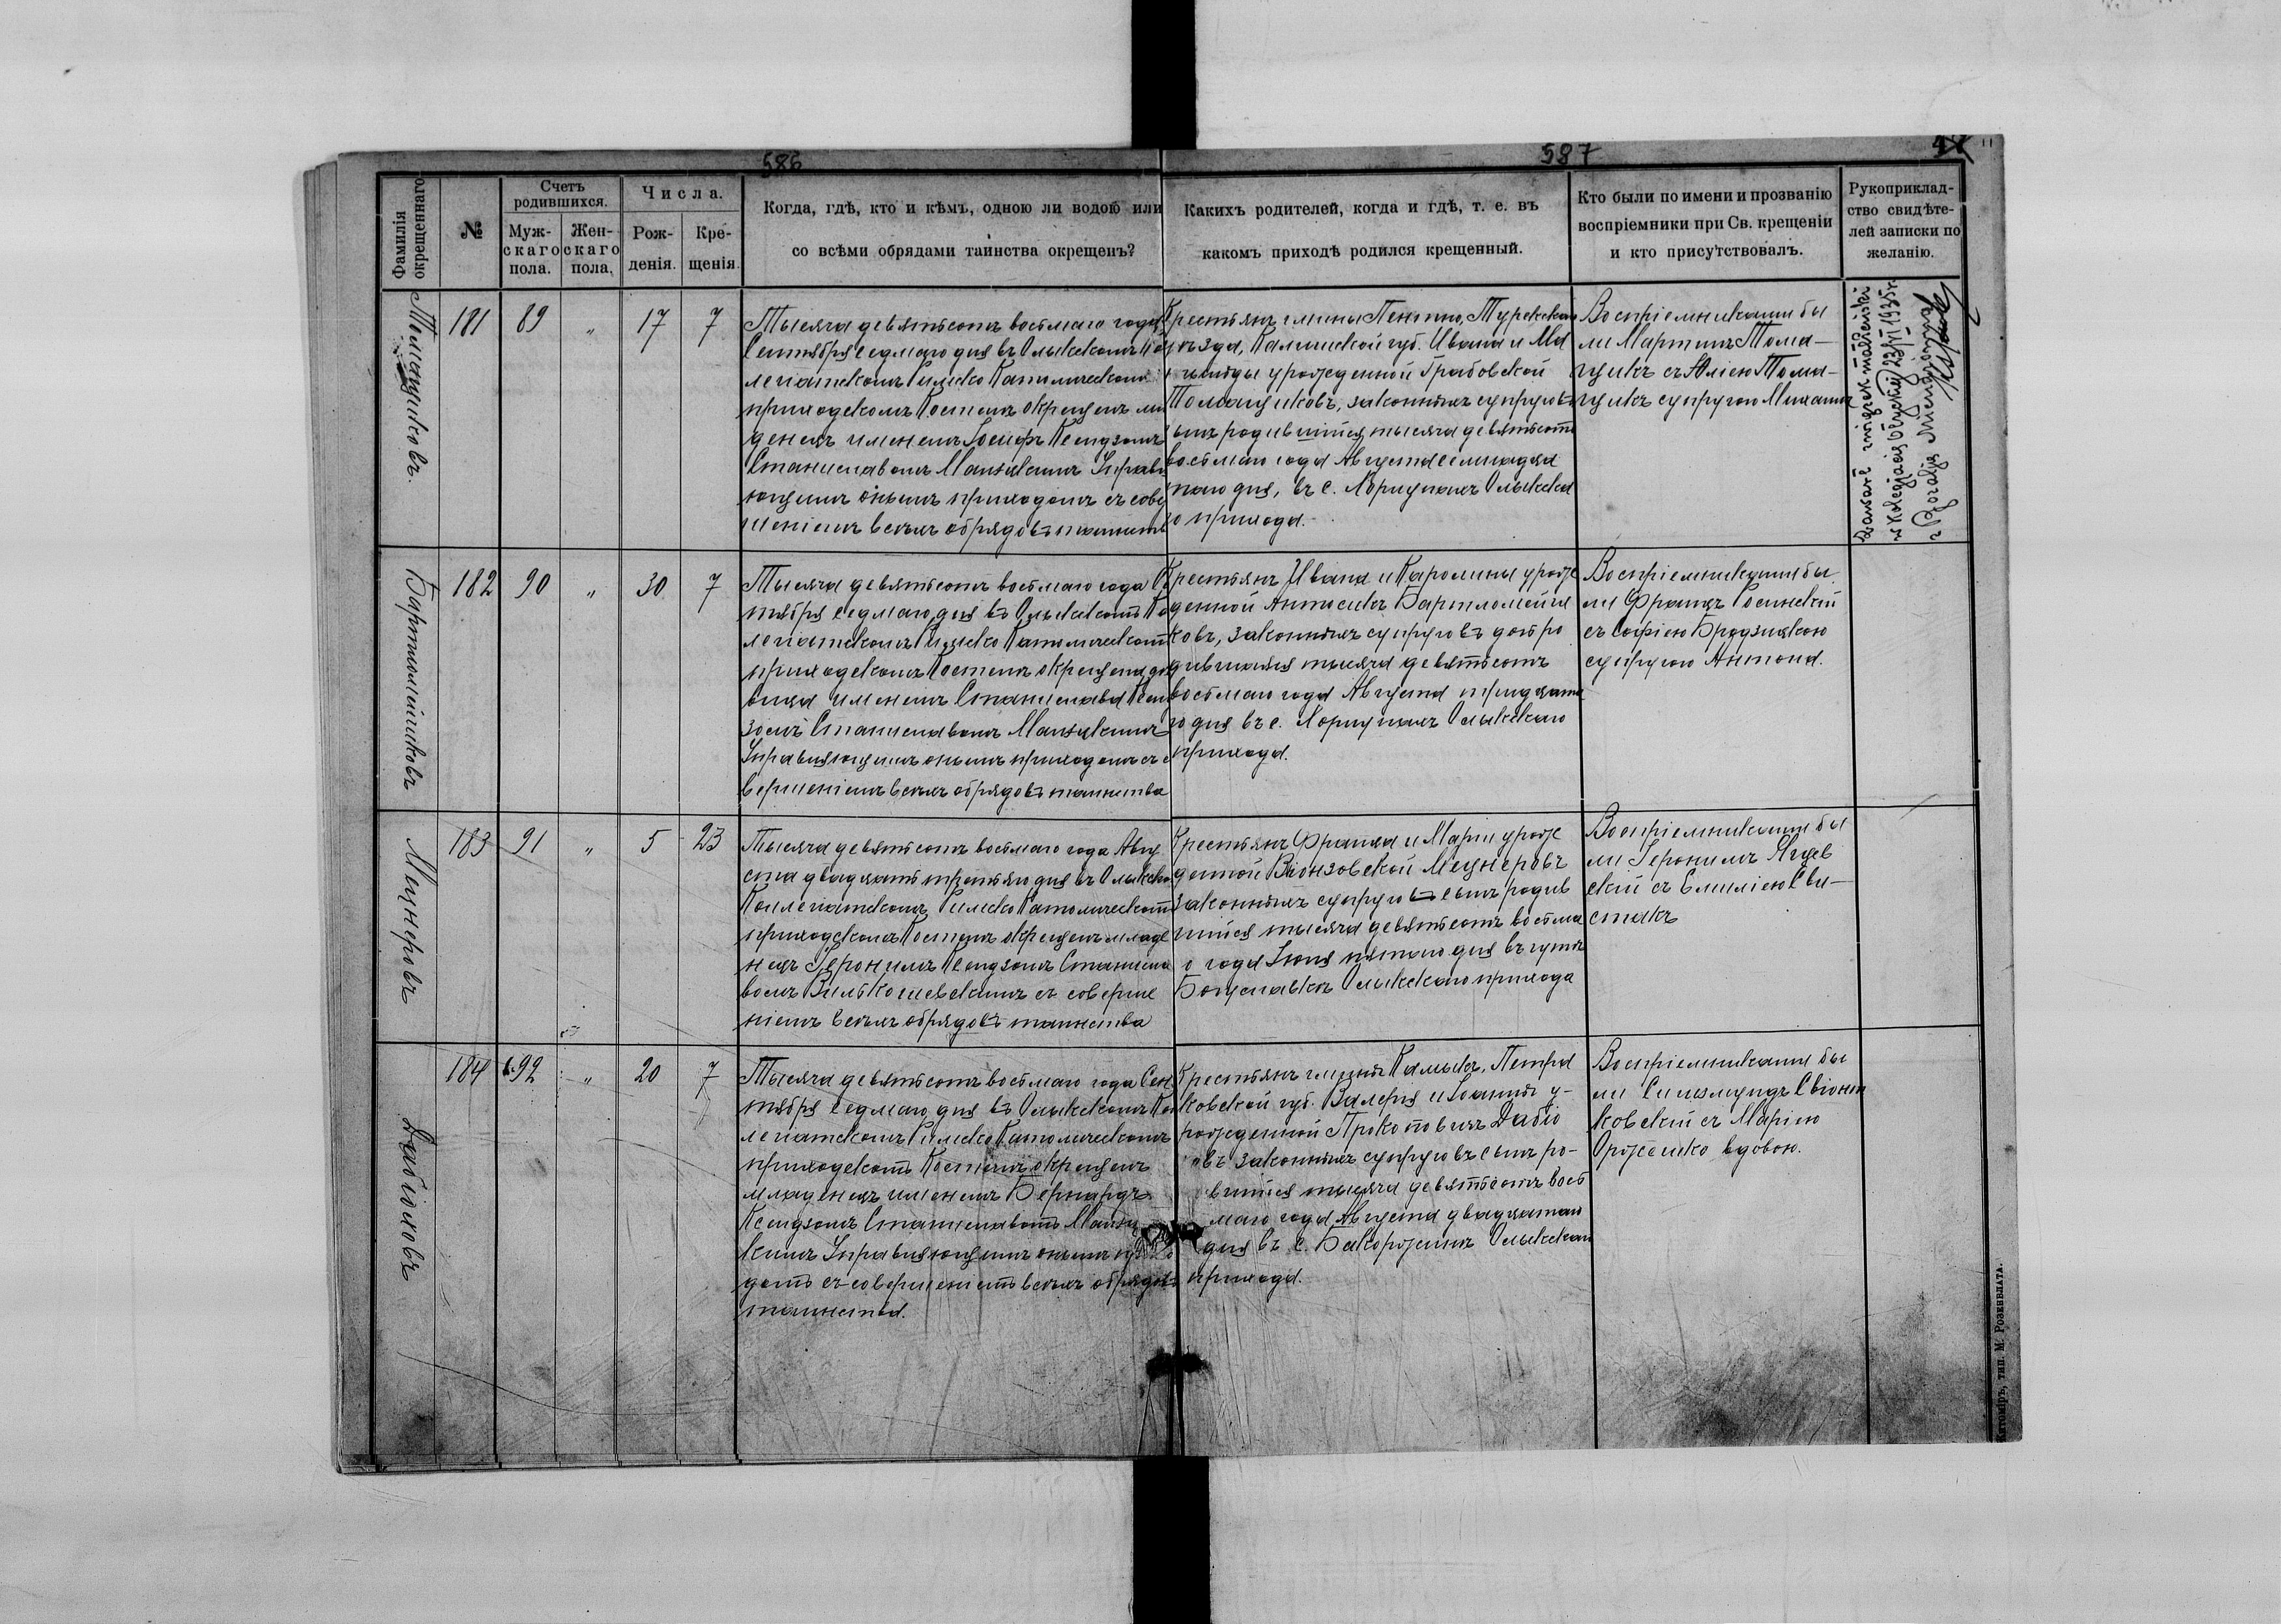 586
587
Фамилія окрещеннаго
№
Счетъ родившихся.
Муж-
скаго
пола.
Жен-
скаго
пола.
Числа.
Рож-
денія.
Кре-
щенія.
Когда, гдѣ, кто и кѣмъ, одною ли водою или
со всѣми обрядами таинства окрещенъ?
Какихъ родителей, когда и гдѣ, т. е. въ
какомъ приходѣ родился крещенный.
Кто были по имени и прозванію
воспріемники при Св. крещеніи
и кто присутствовалъ.
Рукоприклад-
ство свидѣте-
лей записки по
желанію.
Томащиковъ.
181
89
"
17
7
Тысяча девятьсотъ восьмаго года
Сентября седмаго дня въ Олыкскомъ Кол
легіатскомъ Римско Католическомъ
приходскомъ Костелѣ окрещенъ мла
денецъ именемъ Іосифъ Ксендзомъ
Станиславомъ Управля
ющимъ онымъ приходомъ съ совер
шеніемъ всѣхъ обрядовъ таинства
Крестьянъ гмины Пекипно, Турекскаго
уѣзда, Калишской губ. Ивана и Ма
тильды урожденной Грабовской
Томащиковъ, законныхъ супруговъ
сынъ родившійся тысяча девятьсотъ
восьмаго года Августа семнадца
таго дня, въ с. Хорлупахъ Олыкска
го прихода.
Воспріемниками бы
ли Мартинъ Тома-
щикъ съ Юліею Тома-
щикъ супругою Михаила
zawarł związek małżeński
w Kolegjacie Ołyckiej 23/VI 1935 r.
z Rozalją
Бартоломейчиковъ
182
90
"
30
7
Тысяча девятьсотъ восьмаго года Сен
тября седмаго дня въ Олыкскомъ Кол
легіатскомъ Римско Католическомъ
приходскомъ Костелѣ окрещена дѣ
вица именемъ Станислава Ксенд
зомъ Станиславомъ
Управляющимъ онымъ приходомъ съ со
вершеніемъ всѣхъ обрядовъ таинства
Крестьянъ Ивана и Каролины урож
денной Антосикъ Бартоломейчи
ковъ, законныхъ супруговъ дочь ро
дившаяся тысяча девятьсотъ
восьмаго года Августа тридцата
го дня въ с. Хорлупахъ Олыкскаго
прихода.
Воспріемниками бы
ли Францъ Росинскій
съ Софіею Бродзяксою
супругою Антона.
Мецнеровъ
183
91
"
5
23
Тысяча девятьсотъ восьмаго года Авгу
ста двадцать третьяго дня въ Олыкско
Коллегіатскомъ Римско Католическомъ
приходскомъ Костелѣ окрещенъ младе
нецъ Іеронимъ Ксендзомъ Станисла
вомъ Вильконсевскимъ съ соверше
ніемъ всѣхъ обрядовъ таинства
Крестьянъ Франца и Маріи урож
денной Вонзовской Мецнеровъ
законныхъ супруговъ сынъ родив
шійся тысяча девятьсотъ восьма
го года Іюня пятаго дня въ гутѣ
Богуславкѣ Олыкскаго прихода
Воспріемниками бы
ли Іеронимъ Яцев
скій съ Емиліею Сви-
стакъ
Дабіоховъ
184
92
"
20
7
Тысяча девятьсотъ восьмаго года Сен
тября седмаго дня въ Олыкскомъ Кол
легіатскомъ Римско Католическомъ
приходскомъ Костелѣ окрещенъ
младенецъ именемъ Бернардъ
Ксендзомъ Станиславомъ
Управляющимъ онымъ прихо
домъ съ совершеніемъ всѣхъ обрядовъ
таинства.
Крестьянъ гмины Камыкъ, Петро
ковской губ. Валерія и Іоанны у-
рожденной Прокоповичъ Дабіо
овъ законныхъ супруговъ сынъ ро-
вшійся тысяча девятьсотъ вось
маго года Августа двадцатаго
дня въ с. Бакорожинѣ Олыкскаго
прихода.
Воспріемниками бы
ли Сигизмундъ Свіонт
ковскій съ Маріею
Орожешко вдовою.
тип. М. Розенблата.